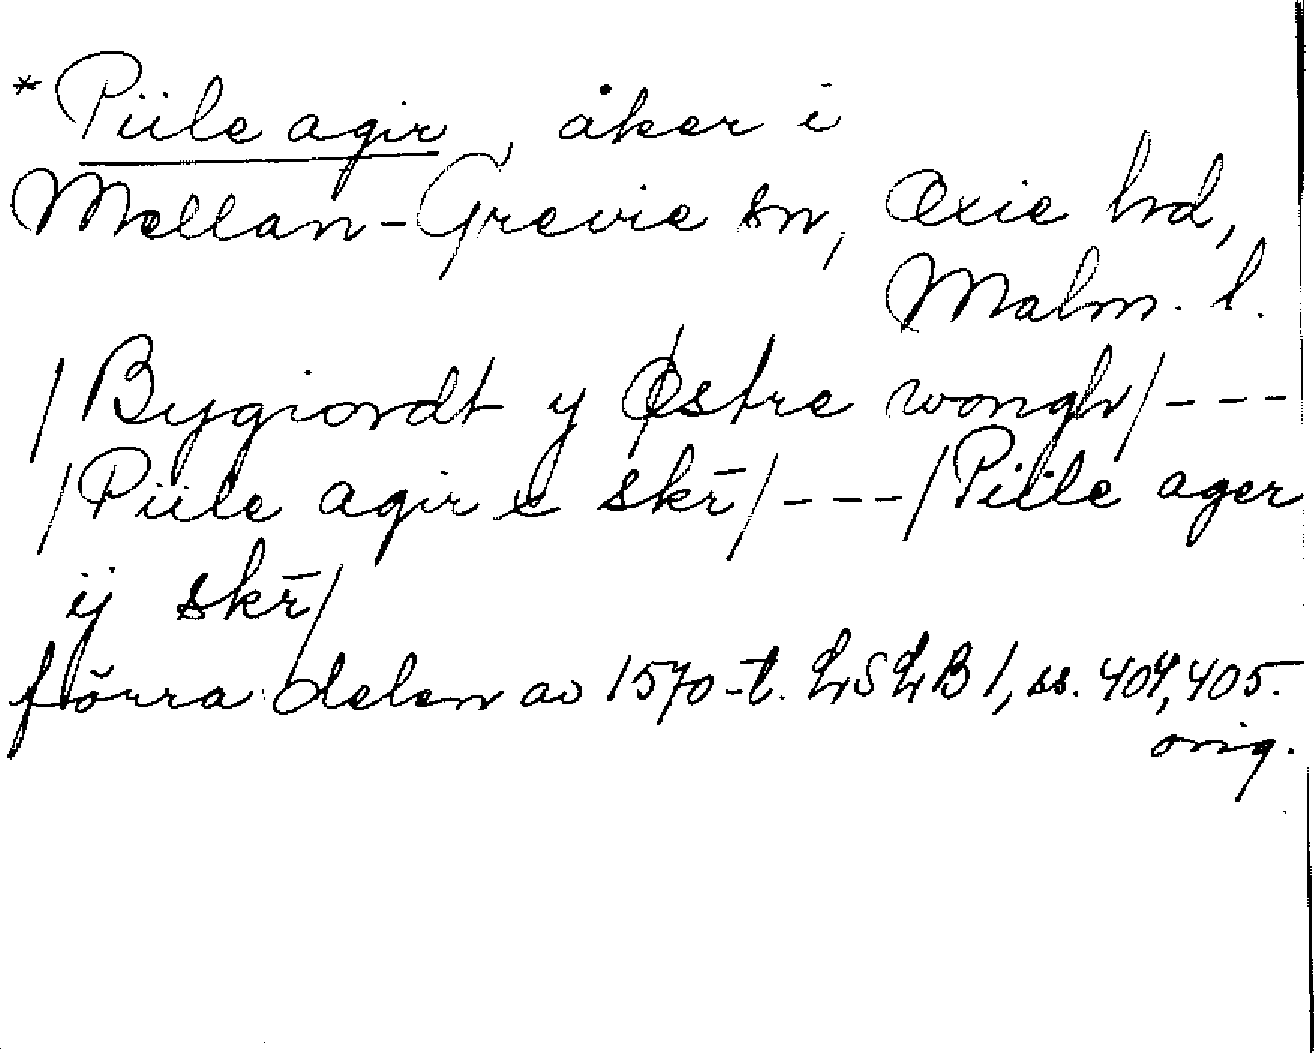 *Piile agir, åker i
Mellan-Grevie sn, Oxie hd,
Malm. l.
/Bygiordt y Østre wongh/---
/Piile agir skr̄/---/Piile ager
ij skr̄/
förra delen av 1570-t. LSLB 1, ss. 404, 405.
orig.